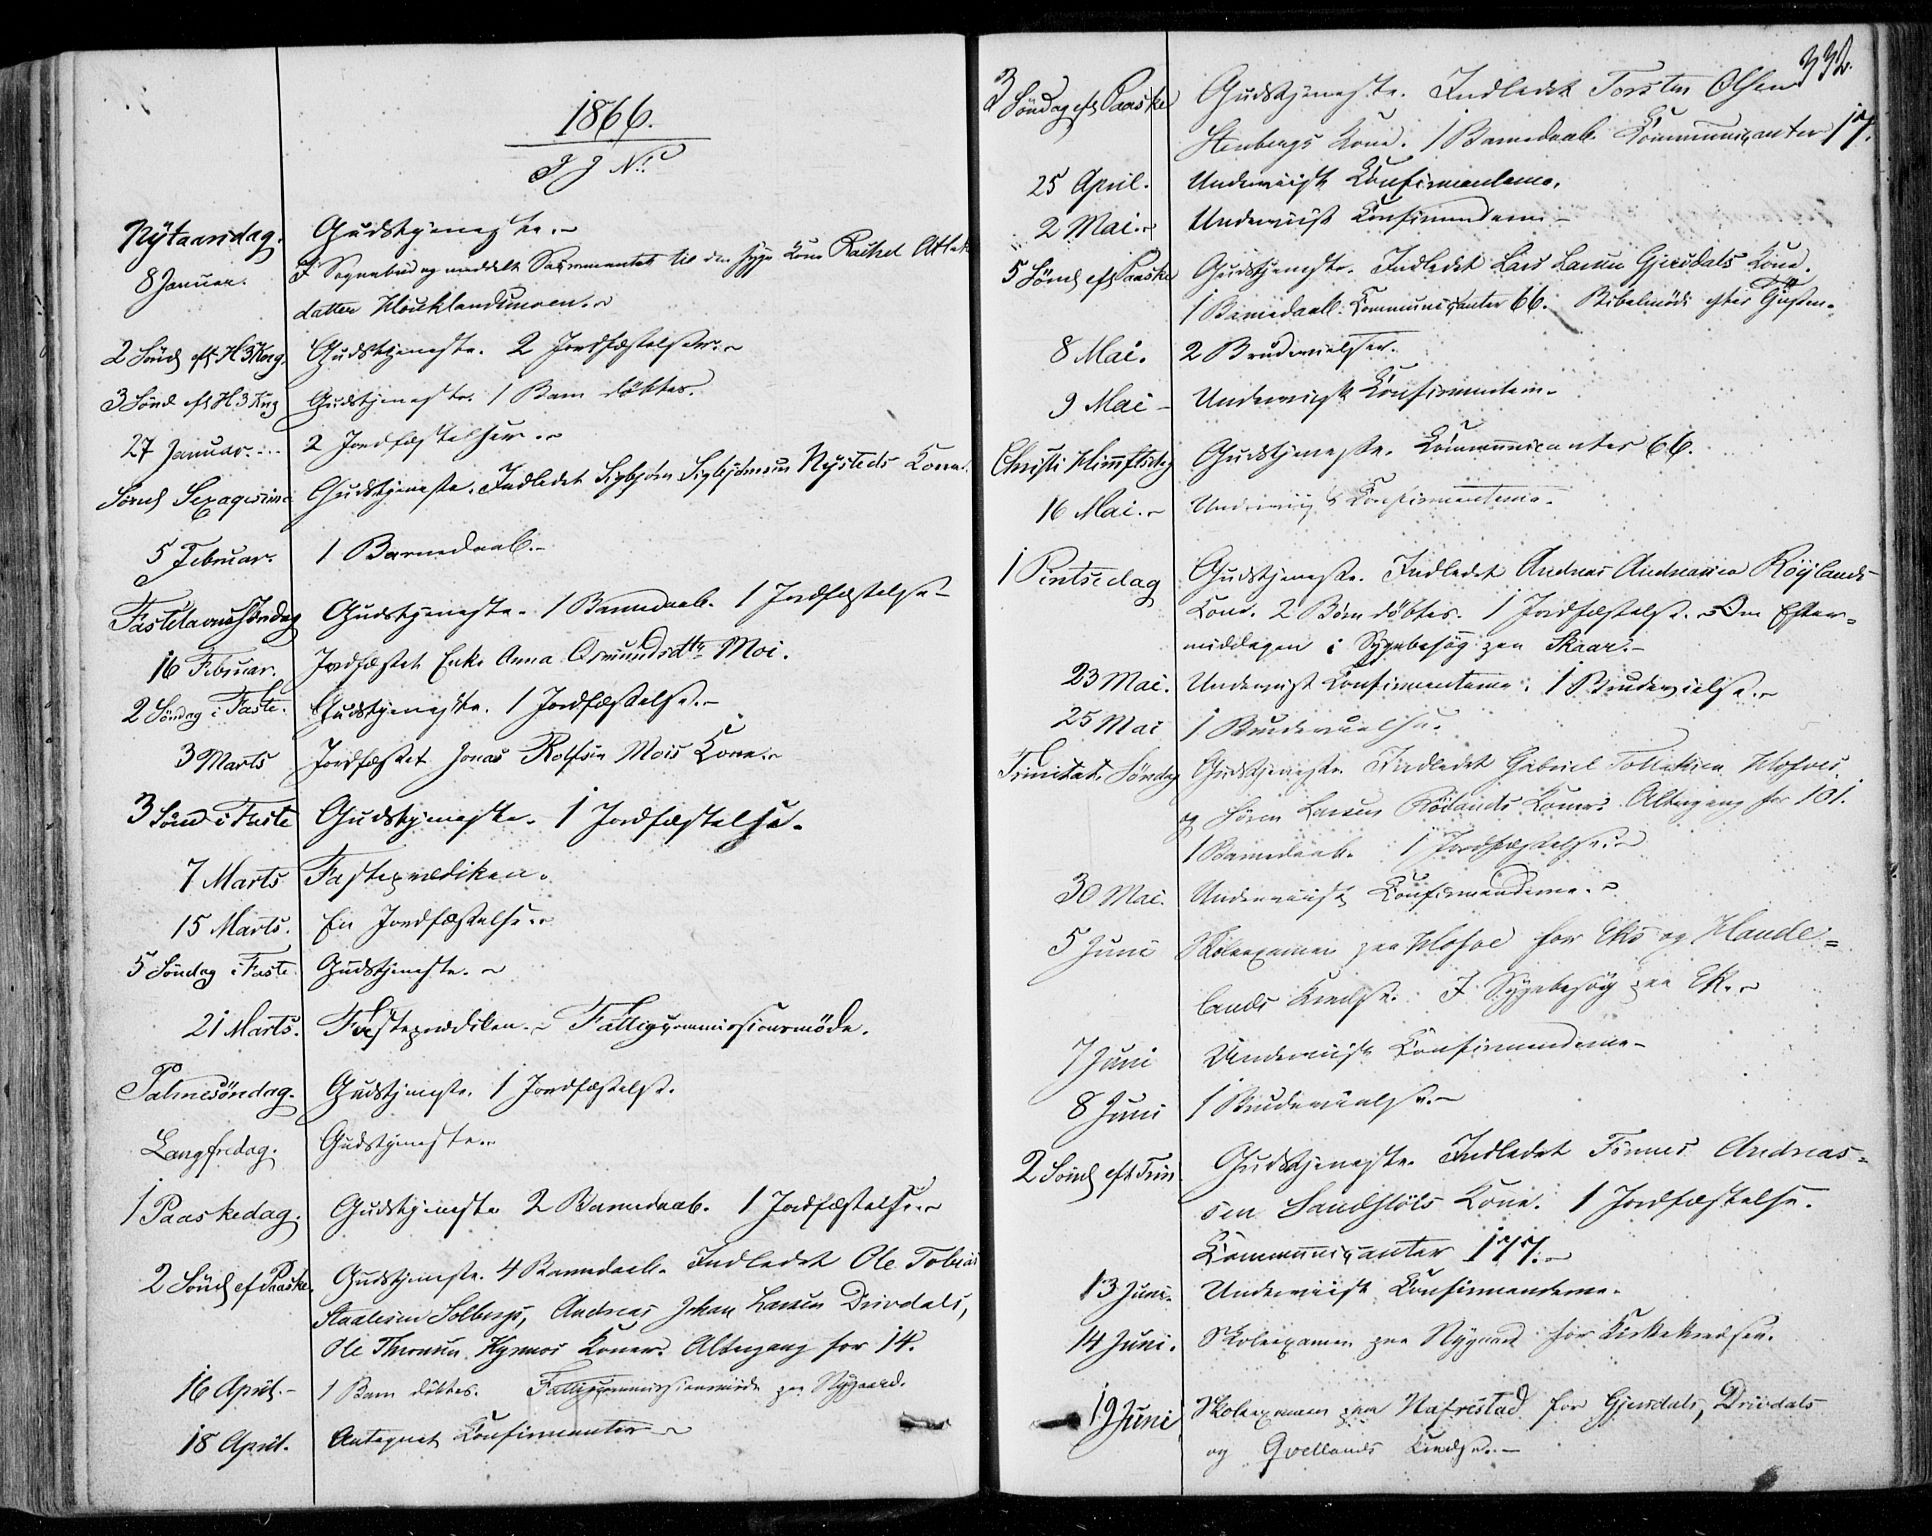 1866.
I J N.
Nytaarsdag. Gudstjeneste.
8 Januar. I Sognebud og meddelt Sacramentet til den syge Kone Rachel Atlak
datter Houklandsmoen.
2 Sönd eft H3Kong. Gudstjeneste. 2 Jordfæstelser.
3 Sönd eft H3Kng Gudstjeneste. 1 Barn döbtes.
27 Januar. 2 Jordfæstelser.
Sönd Sexagesima Gudstjeneste. Indledet Sigbjörn Sigbjörnsens Nysteds Kone.
5 Februar. 1 Barnedaab.
FastelavnsSöndag Gudstjeneste. 1 Barnedaab. 1 Jordfæstelse
16 Februar. Jordfæstet Enke Anna Osmundsdtr Moi.
2 Söndag i Faste. Gudstjeneste. 1 Jordfæstelse.
3 Marts Jordfæstet Jonas Rolfsen Mois Kone.
3 Sönd i Faste Gudstjeneste. 1 Jordfæstelse.
7 Marts Fasteprædiken.
15 Marts. En Jordfæstelse.
5 Söndag i Faste. Gudstjeneste.
21 Marts. Fasteprædiken. Fattigcommissionsmöde.
Palmesöndag. Gudstjeneste. 1 Jordfæstelse.
Langfredag. Gudstjeneste.
1 Paaskedag. Gudstjeneste 2 Barnedaab. 1 Jordfæstelse.
2 Sönd ef Paaske. Gudstjeneste. 4 Barnedaab. Indledet Ole Tobias
Staalesen Solbergs, Andreas Johan Larsen Drivdals,
Ole Thronsen Koner. Altergang for 14.
16 April. 1 Barn döbtes. Fattigcommissionsmöde paa Nygaard.
18 April. Antegnet Konfirmanter
332.
3 Söndag eft Paaske Gudstjeneste. Indledet Torsten Olsen
Stenbergs Kone. 1 Barnedaab. Kommunicanter 17.
25 April. Underviist Konfirmanterne.
2 Mai. Underviist Konfirmanderne
5 Sönd eft Paaske Gudstjeneste. Indledet Lars Larsen Gjersdals Kone.
1 Barnedaab. Kommunicanter 66. Bibelmöde efter Gustten.
8 Mai. 2 Brudevielser.
9 Mai Underviist Konfirmanterne.
Christi Himmftsdag Gudstjeneste. Kommunicanter 66.
16 Mai. Underviist Konfirmanterne.
1 Pintsedag Gudstjeneste. Indledet Andreas Andreasen Röylands
Kone. 2 Börn döbtes. 1 Jordfæstelse. Om Efter-
middagen i Sygebesög paa Skaar.
23 Mai. Underviist Konfirmanterne. 1 Brudevielse.
25 Mai 1 Brudevielse.
Trinitatis Söndag Gudstjeneste. Indledet Gabriel Tollaksen Hofves
og Sören Larsen Rölands Koner. Altergang for 101.
1 Barnedaab. 1 Jordfæstelse.
30 Mai. Underviist Konfirmanderne.
5 Juni Skoleexamen paa Hofve for Eks og Haude-
lands Kredse. I Sygebesög paa Ek.
7 Juni Underviist Konfirmanderne
8 Juni 1 Brudevielse.
2 Sönd eft Trin Gudstjeneste. Indledet Tönnes Andreas-
sen Sandstöls Kone. 1 Jordfæstelse.
Kommunicanter 177.
13 Juni. Underviist Konfirmanderne.
14 Juni. Skoleexamen paa Nygaard for Kirkekredsen.
19 Juni Skoleexamen paa Hafrestad for Gjersdals, Drivdals
og Qvellands Kredse.